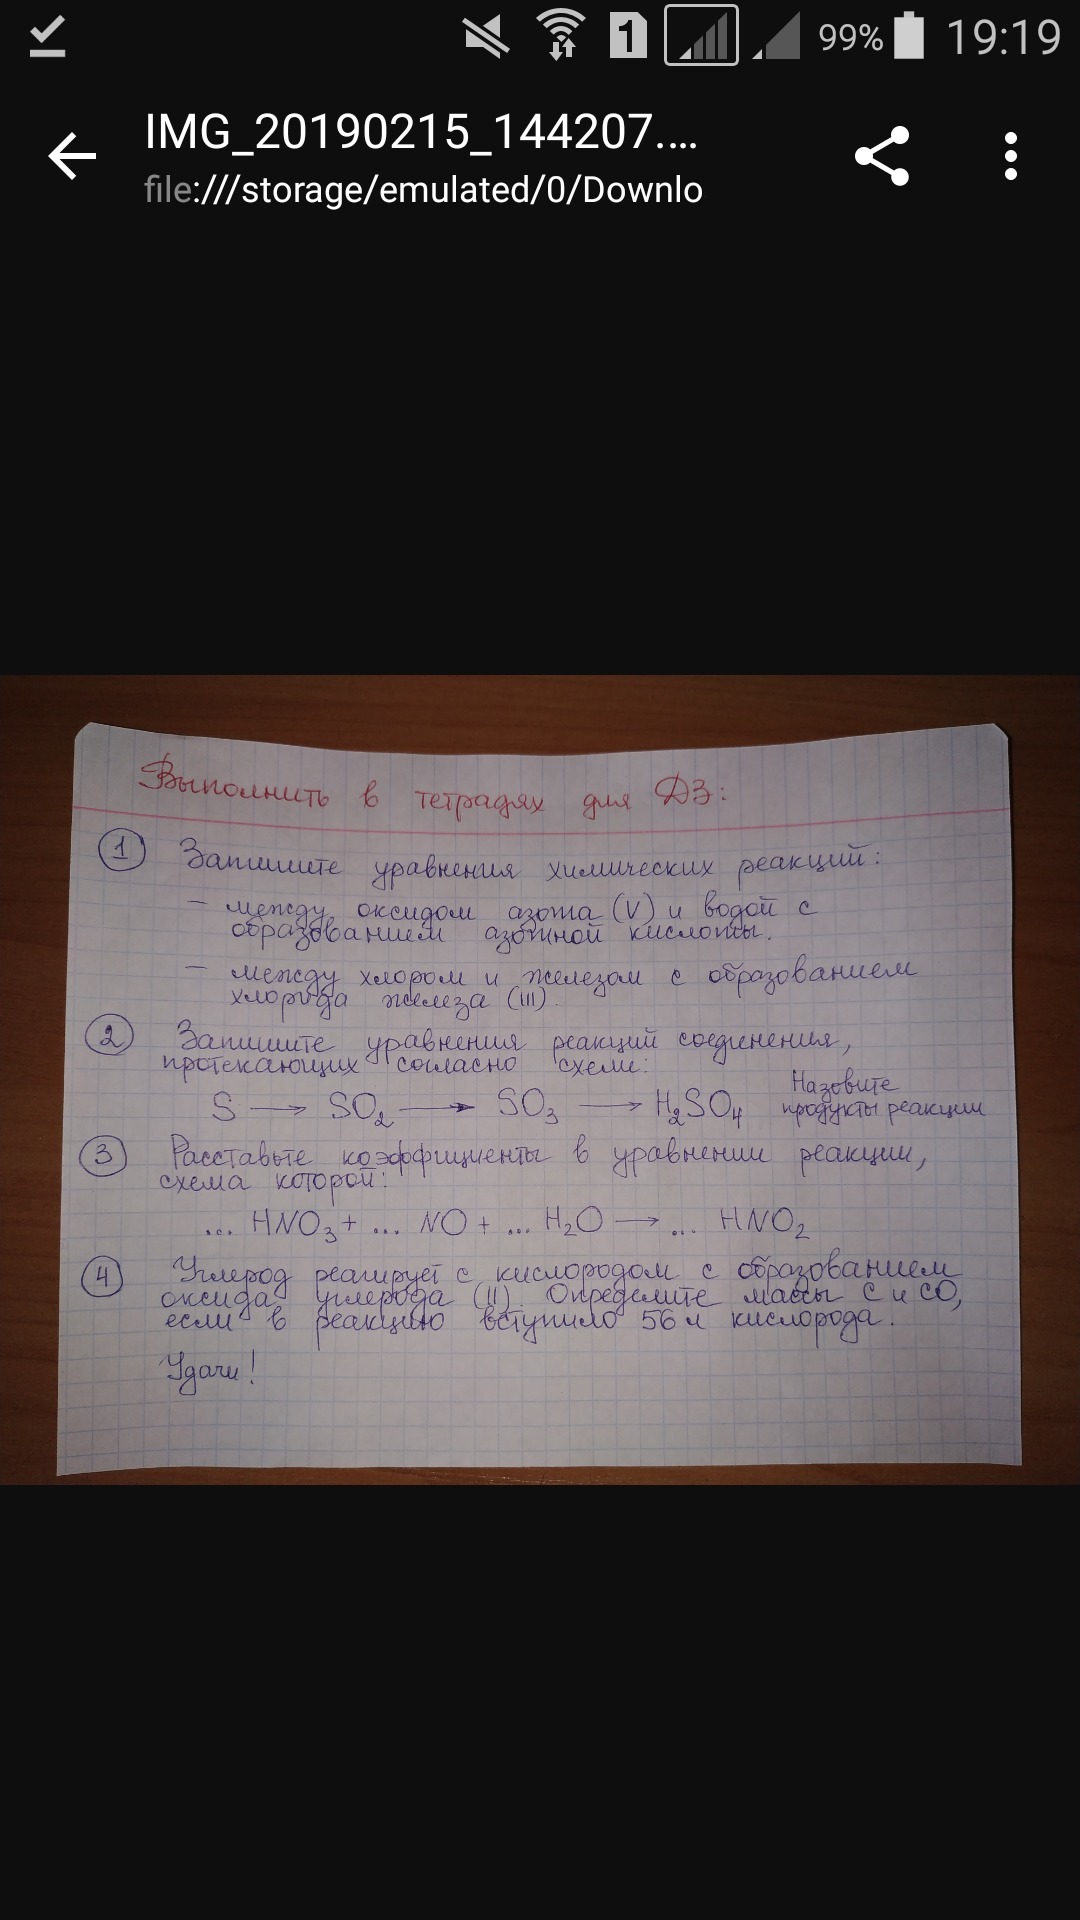 1
99%
19:19
IMG_20190215_144207....
file:///storage/emulated/0/Downlo
Выполнить в тетрадях для ДЗ:
1 Запишите уравнения химических реакций:
- между оксидом азота (V) и водой с
образованием азотной кислоты.
- между хлором и железом с образованием
хлорида железа (III).
2 Запишите уравнения реакций соединения,
протекающих согласно схеме:
S → SO₂ → SO₃ → H₂SO₄ Назовите
продукты реакции
3 Расставьте коэффициенты в уравнении реакции,
схема которой:
... HNO₃ + ... NO + ... H₂O → ... HNO₂
4 Углерод реагирует с кислородом с образованием
оксида углерода (II). Определите массы C и CO,
если в реакцию вступило 56 л кислорода.
Удачи!